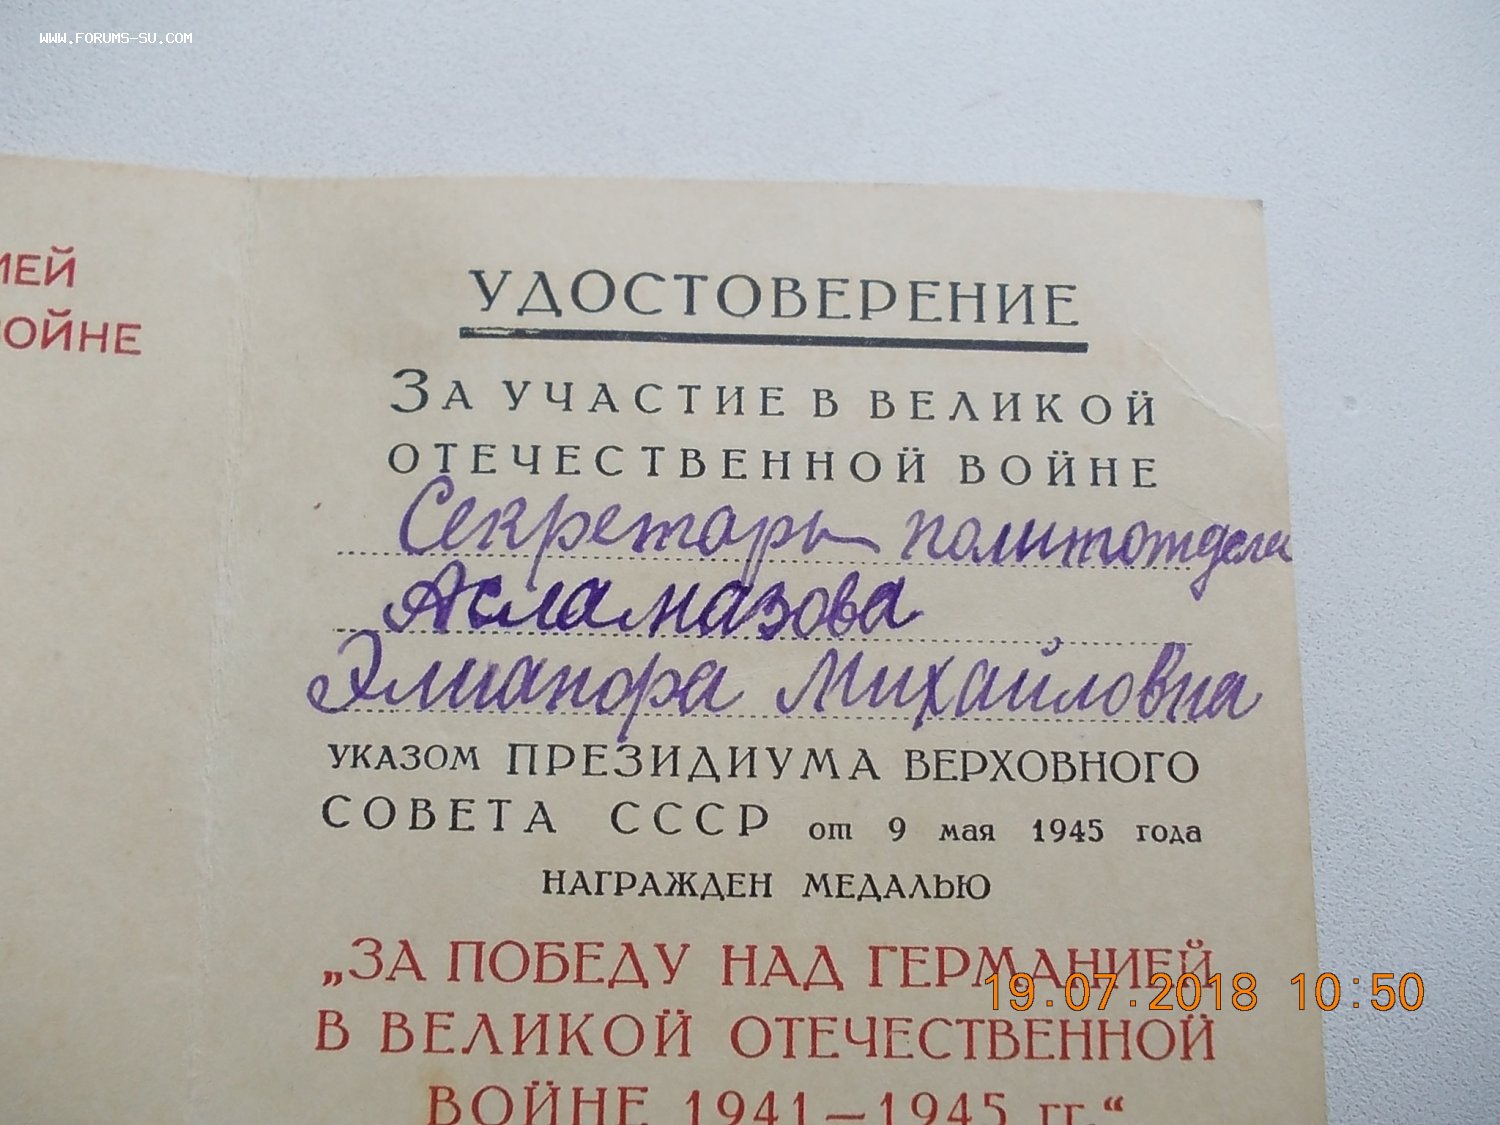 WWW.FORUMS-SU.COM
ИЕЙ
ОЙНЕ
УДОСТОВЕРЕНИЕ
ЗА УЧАСТИЕ В ВЕЛИКОЙ
ОТЕЧЕСТВЕННОЙ ВОЙНЕ
Секретарь политотдела
Асламазова
Элианора Михайловна
УКАЗОМ ПРЕЗИДИУМА ВЕРХОВНОГО
СОВЕТА СССР от 9 мая 1945 года
НАГРАЖДЕН МЕДАЛЬЮ
„ЗА ПОБЕДУ НАД ГЕРМАНИЕЙ
В ВЕЛИКОЙ ОТЕЧЕСТВЕННОЙ
ВОЙНЕ 1941—1945 гг.“
19.07.2018 10:50